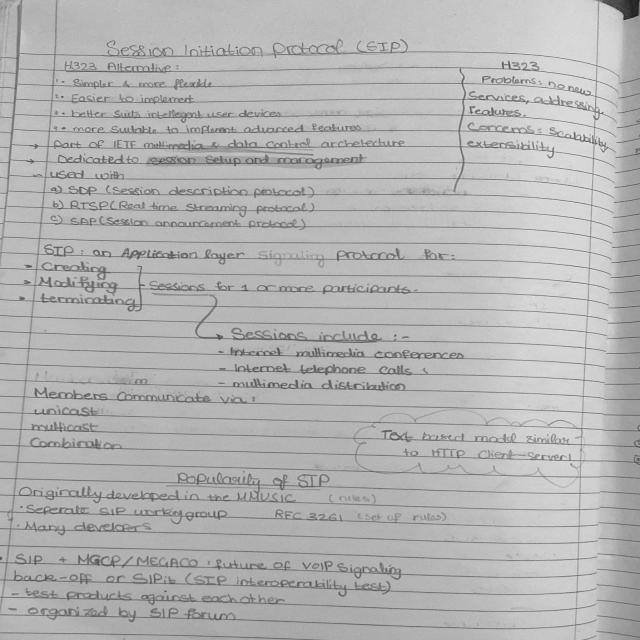 Session Initiation Protocol (SIP)
H323 Alternative:
Simpler & more flexible
Easier to implement
better suits intellegent user devices
more suitable to implment advanced features
→ Part of IETF multimedia & data control archetecture
→ Dedicated to session setup and management
- used with
a) SDP (Session description protocol)
b) RTSP (Real time streaming protocol)
c) SAP (Session announcement protocol)
H323
Problems: no new
Services, addressing,
features.
Concerns: Scalability
extensibility
SIP: an Application layer Signaling protocol for:
Creating
Modifying - Sessions for 1 or more participants.
terminating
→ Sessions include :-
- Internet multimedia conferences
- Internet telephone calls
- multimedia distribution
Members Communicate via:
unicast
multicast
Combination
Text based model similar
to HTTP Client-server!
Popularity of SIP
Originally developed in the MMUSIC (rules)
Seperate SIP working group RFC 3261 (set of rules)
Many developers
SIP + MGCP/MEGACO: future of VOIP signaling
back-off or SIPit (SIP interoperability test)
- test products against eachother
- organized by SIP forum